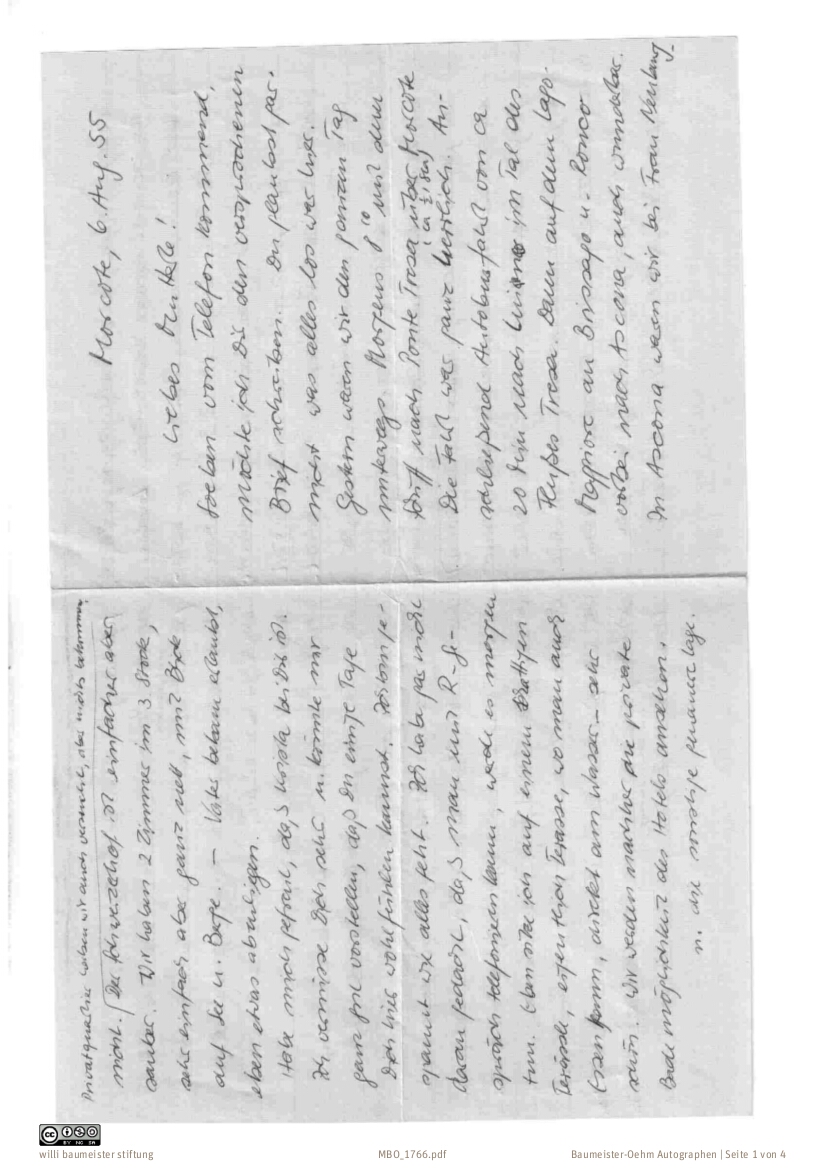 Morcote, 6. Aug. 55
Liebes Mutterle!
soeben vom Telefon kommend,
möchte ich Dir den versprochenen
Brief schreiben. Du glaubst gar
nicht was alles los war hier.
Gestern waren wir den ganzen Tag
unterwegs. Morgens 8¹⁰ mit dem
Schiff nach Ponte Tresa über Morcote
Die Fahrt war ganz herrlich. An-
schliessend Autobusfahrt von ca
20 km nach Luino im Tal des
Flußes Tresa. Dann auf dem Lago
Maggiore an Brissago u. Ronco
vorbei nach Ascona, auch wunderbar.
In Ascona waren wir bei Frau
Privatquartier haben wir auch versucht, aber nichts bekommen
nicht. Der Schweizerhof ist einfacher aber
sauber. Wir haben 2 Zimmer im 3 Stock,
sehr einfach aber ganz nett, mit Blick
auf See u. Berge. – Vater bekam erlaubt,
eben etwas abzulegen.
Habe mich gefreut, daß Krista bei Dir ist.
Ich vermisse Dich sehr u. könnte mir
ganz gut vorstellen, daß Du einige Tage
Dich hier wohlfühlen kannst. Ich bin ge-
spannt wie alles geht. Ich habe gar nicht
daran gedacht, daß man mit R-Ge-
spräch telefonieren kann, werde es morgen
tun. Eben sitze ich auf einem
Terasse, eigentlich Terasse, wo man auch
Essen kann, direkt am Wasser – sehr
schön. Wir werden nachher die private
Bademöglichkeit des Hotels ansehen.
u. die sonstige genaue Lage.
willi baumeister stiftung
MBO_1766.pdf
Baumeister-Oehm Autographen | Seite 1 von 4
CC BY NC SA